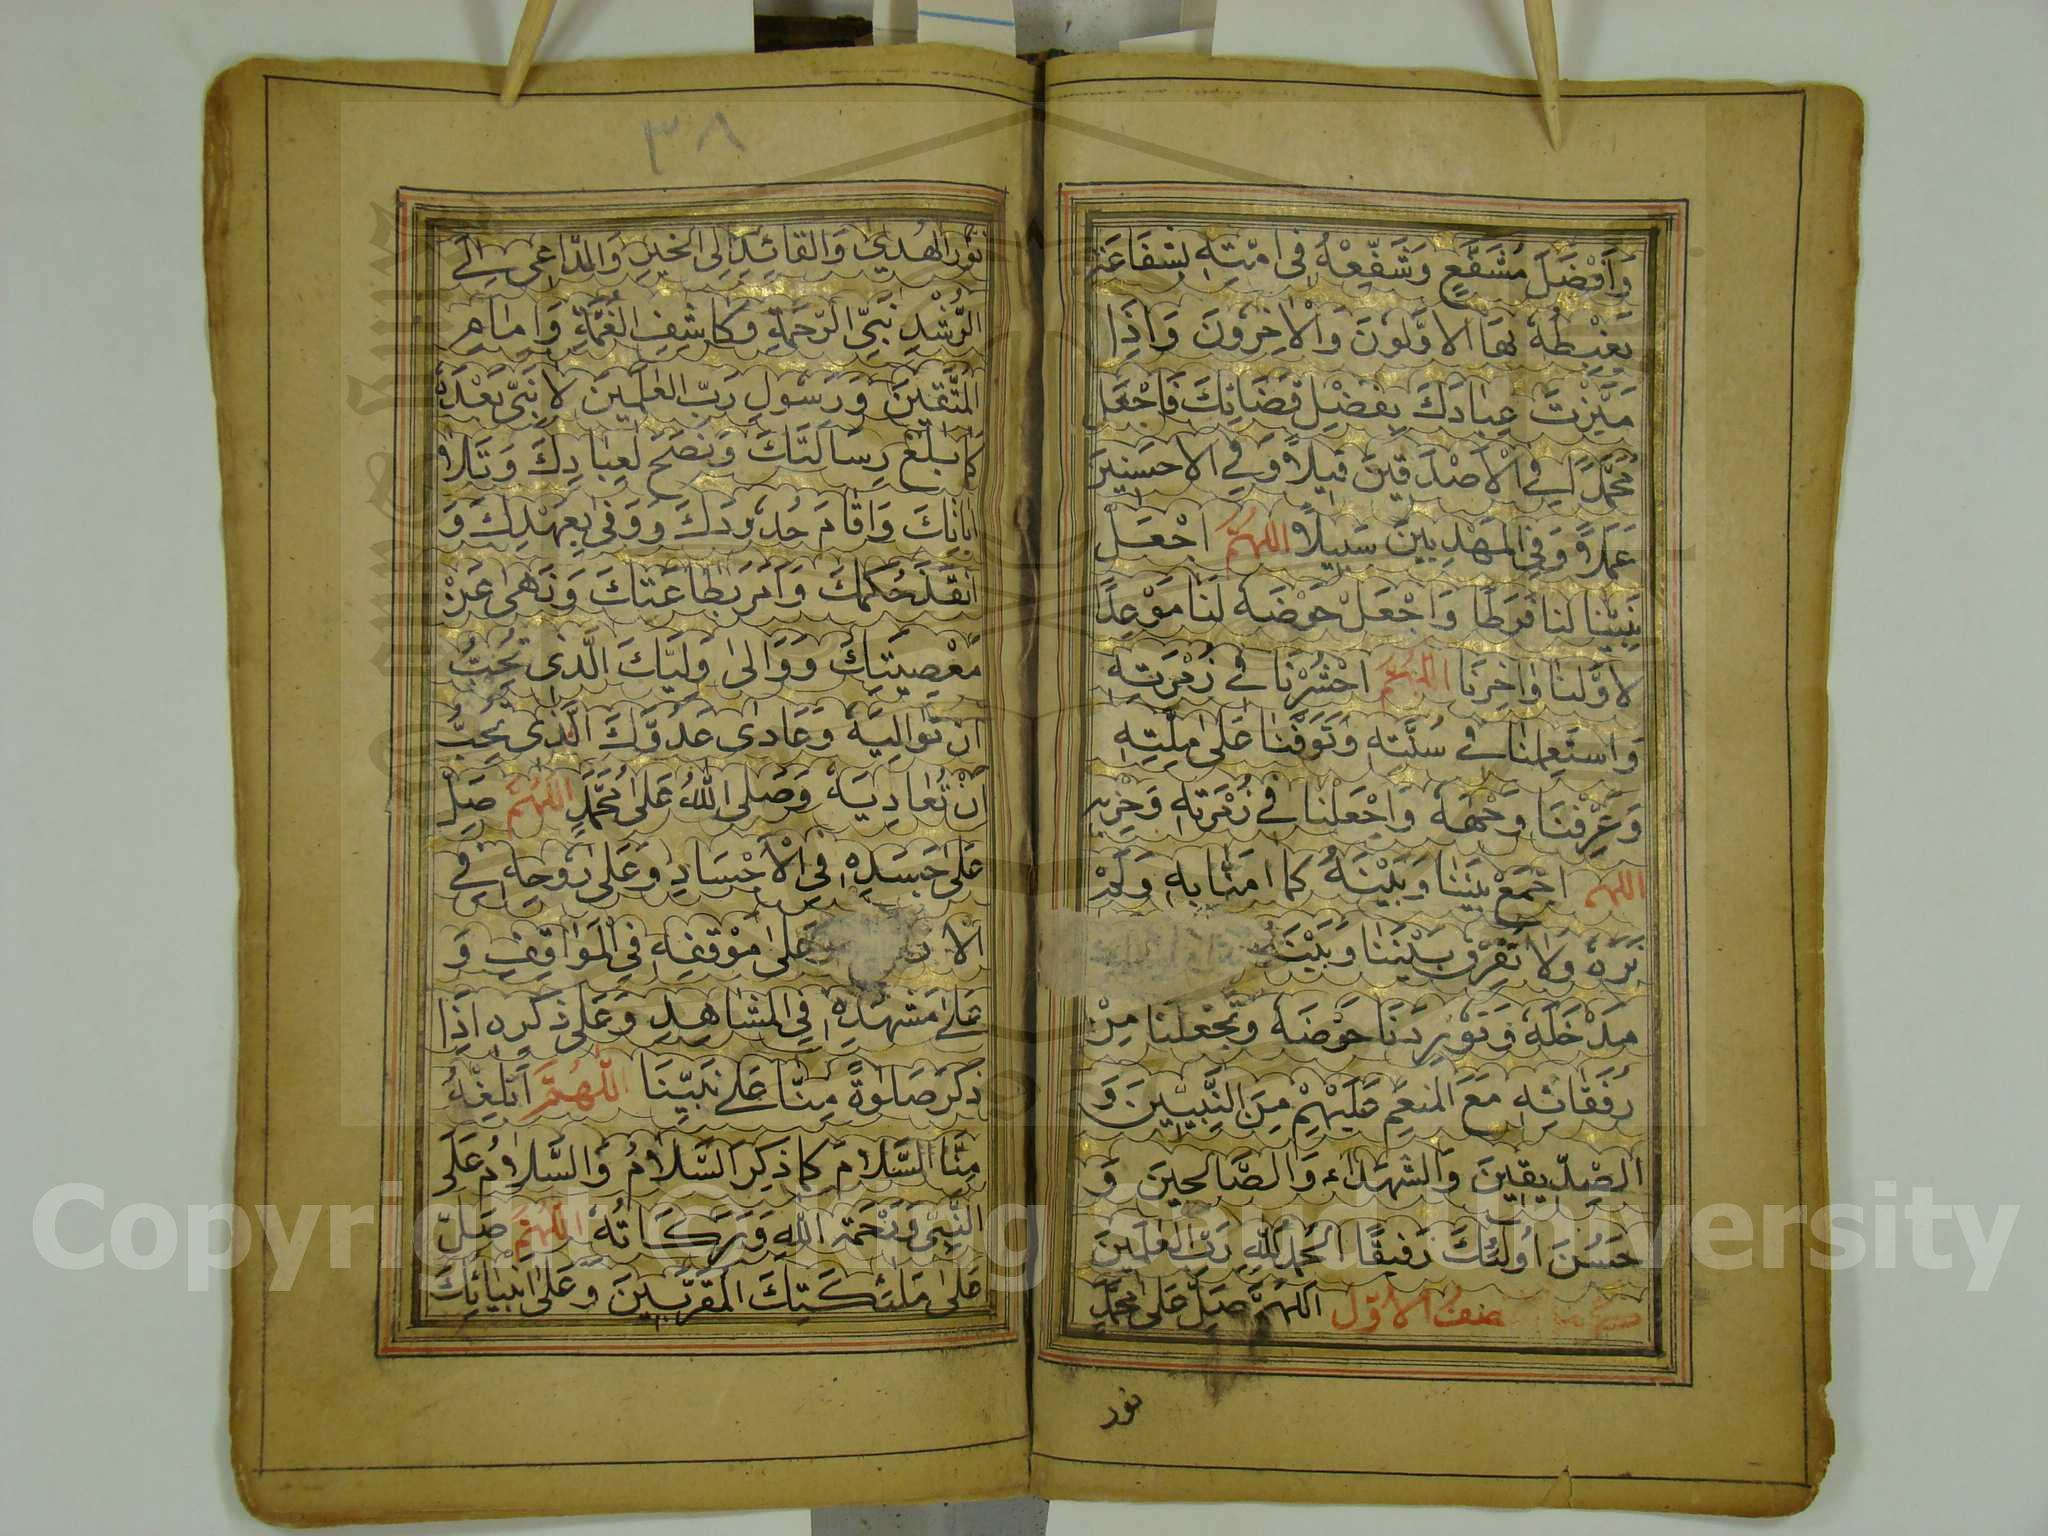 وَاَفْضَلَ مُشَفَّعٍ وَشَفِّعْهُ فِى اُمَّتِهِ بِشَفَاعَتِهِ
يَغْبِطُهُ بِهَا الاَوَّلُونَ وَالْاٰخِرُونَ وَاِذَا
مَيَّزْتَ عِبَادَكَ بِفَضْلِ قَضَائِكَ فَاجْعَلْ
مُحَمَّدًا فِى الْاَصْدَقِينَ قِيلاً وَفِى الاَحْسَنِينَ
عَمَلاً وَفِى الْمَهْدِيِّينَ سَبِيلاً اَللّٰهُمَّ اجْعَلْ
نَبِيَّنَا لَنَا فَرَطًا وَاجْعَلْ حَوْضَهُ لَنَا مَوْعِدًا
لِاَوَّلِنَا وَاٰخِرِنَا اَللّٰهُمَّ احْشُرْنَا فِى زُمْرَتِهِ
وَاسْتَعْمِلْنَا فِى سُنَّتِهِ وَتَوَفَّنَا عَلٰى مِلَّتِهِ
وَعَرِّفْنَا وَجْهَهُ وَاجْعَلْنَا فِى زُمْرَتِهِ وَحِزْبِهِ
اللهم اجْمَعْ بَيْنَنَا وَبَيْنَهُ كَمَا اٰمَنَّا بِهِ وَلَمْ
نَرَهُ وَلَا تُفَرِّقْ بَيْنَنَا وَبَيْنَهُ
مَدْخَلَهُ وَتُوْرِدَنَا حَوْضَهُ وَتَجْعَلَنَا مِنْ
رُفَقَائِهِ مَعَ الْمُنْعَمِ عَلَيْهِمْ مِنَ النَّبِيِّينَ وَ
الصِّدِّيقِينَ وَالشُّهَدَاءِ وَالصَّالِحِينَ وَ
حَسُنَ اُولٰئِكَ رَفِيقًا اَلْحَمْدُ لِلّٰهِ رَبِّ الْعٰلَمِينَ
صفُ الاَوّل اَللّٰهُمَّ صَلِّ عَلٰى مُحَمَّدٍ
نور
٣٨
نُوْرِ الْهُدٰى وَالْقَائِدِ اِلَى الْخَيْرِ وَالدَّاعِى اِلَى
الرُّشْدِ نَبِىِّ الرَّحْمَةِ وَكَاشِفِ الْغُمَّةِ وَاِمَامِ
الْمُتَّقِينَ وَرَسُولِ رَبِّ الْعٰلَمِينَ لَا نَبِىَّ بَعْدَهُ
كَمَا بَلَّغَ رِسَالَتَكَ وَنَصَحَ لِعِبَادِكَ وَتَلاَ
اٰيَاتِكَ وَاَقَامَ حُدُودَكَ وَوَفٰى بِعَهْدِكَ وَ
اَنْفَذَ حُكْمَكَ وَاَمَرَ بِطَاعَتِكَ وَنَهٰى عَنْ
مَعْصِيَتِكَ وَوَالٰى وَلِيَّكَ الَّذِى تُحِبُّ
اَنْ تُوَالِيَهُ وَعَادٰى عَدُوَّكَ الَّذِى تُحِبُّ
اَنْ تُعَادِيَهُ وَصَلَّى اللّٰهُ عَلٰى مُحَمَّدٍ اَللّٰهُمَّ صَلِّ
عَلٰى جَسَدِهِ فِى الْاَجْسَادِ وَعَلٰى رُوْحِهِ فِى
الْاَر عَلٰى مَوْقِفِهِ فِى الْمَوَاقِفِ وَ
عَلٰى مَشْهَدِهِ فِى الْمَشَاهِدِ وَعَلٰى ذِكْرِهِ اِذَا
ذُكِرَ صَلٰوةً مِنَّا عَلٰى نَبِيِّنَا اَللّٰهُمَّ اَبْلِغْهُ
مِنَّا السَّلَامَ كَمَا ذُكِرَ السَّلَامُ وَالسَّلَامُ عَلَى
النَّبِىِّ وَرَحْمَةُ اللّٰهِ وَبَرَكَاتُهُ اَللّٰهُمَّ صَلِّ
عَلٰى مَلٰئِكَتِكَ الْمُقَرَّبِينَ وَعَلٰى اَنْبِيَائِكَ
Copyright © King Saud University